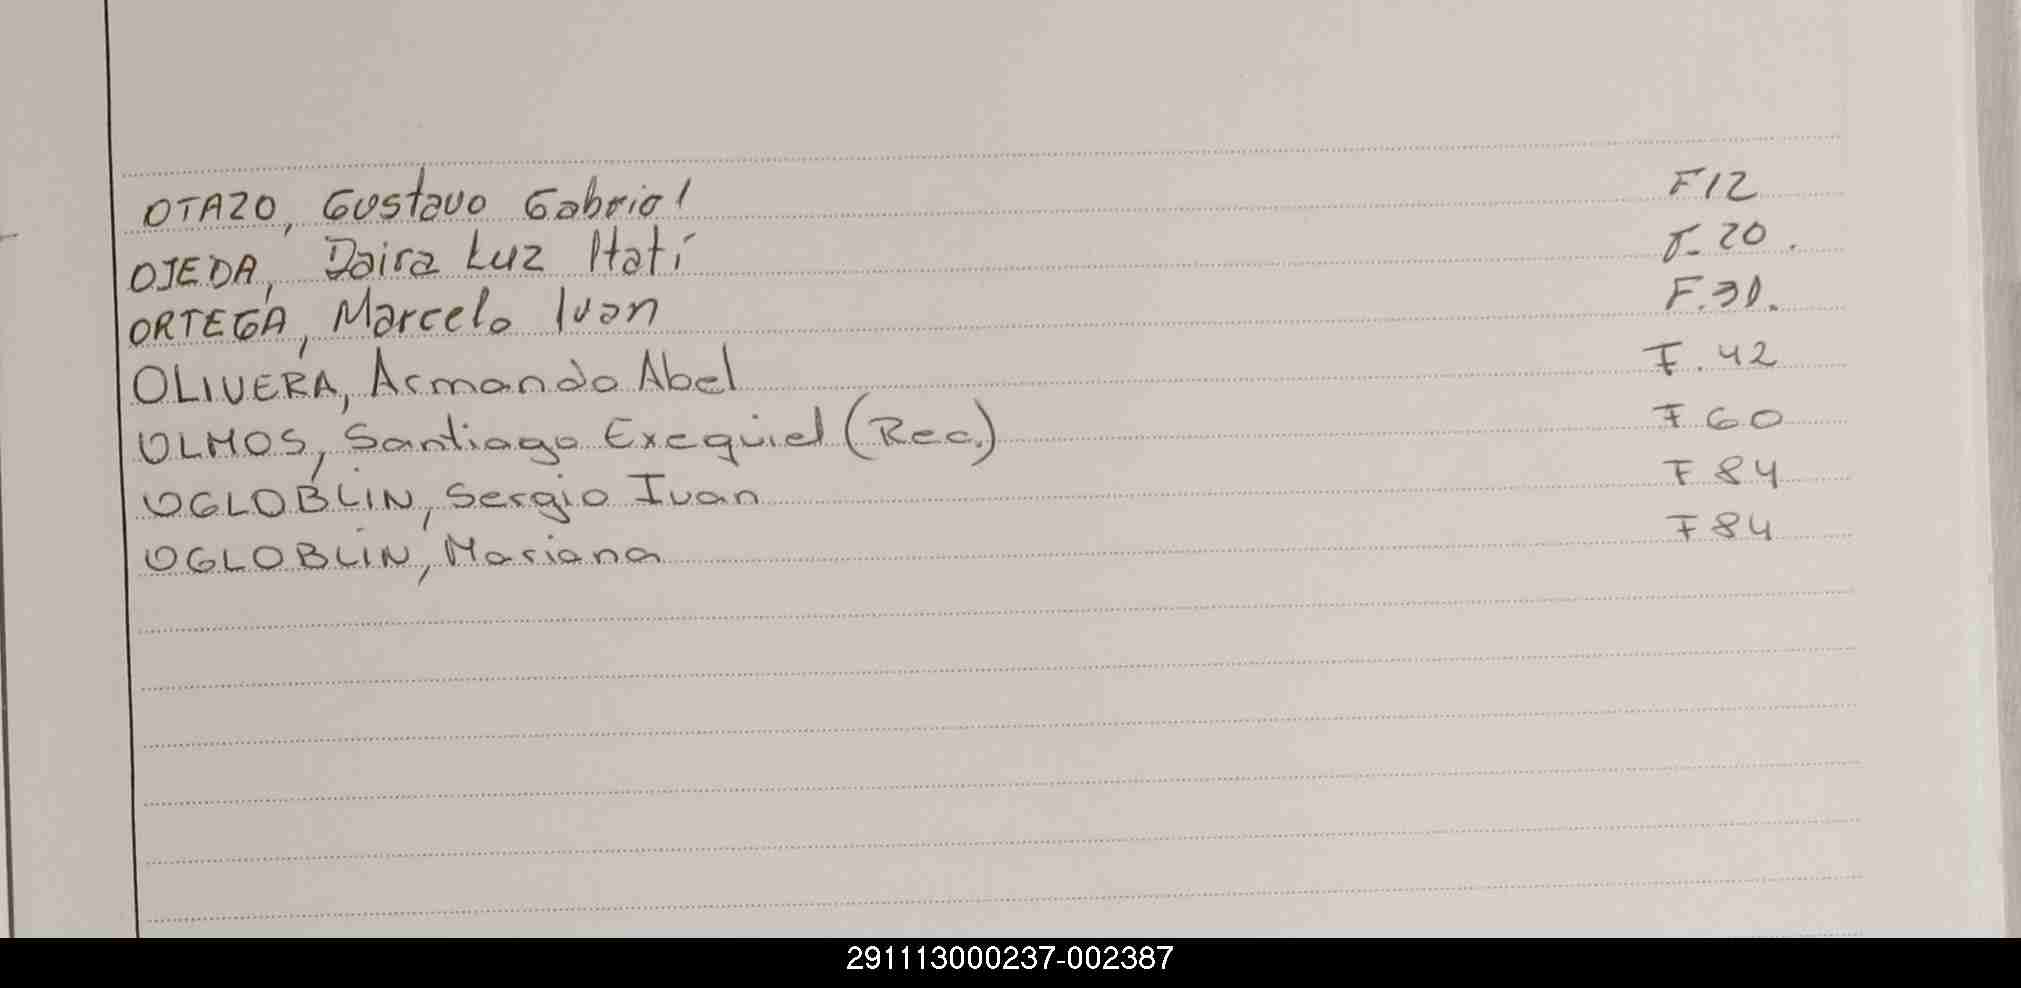 OTAZO, Gustavo Gabriel F12
OJEDA, Daira Luz Itatí F- 20.
ORTEGA, Marcelo Ivan F.31.
OLIVERA, Armando Abel F. 42
OLMOS, Santiago Exequiel (Rec.) F 60
OGLOBLIN, Sergio Ivan F 84
OGLOBLIN, Mariana F 84
291113000237-002387